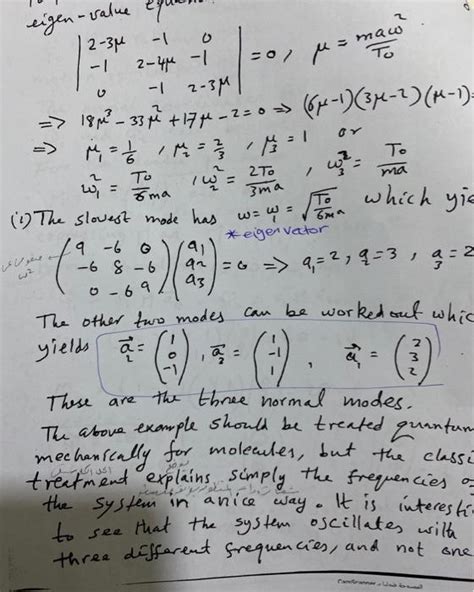 eigen-value equ
8
| 2-3μ -1 0 |
| -1 2-4μ -1 | = 0, μ = maω²/T₀
| 0 -1 2-3μ |
=> 18μ³ - 33μ² + 17μ - 2 = 0 => (6μ-1)(3μ-2)(μ-1)=
=> μ₁ = 1/6, μ₂ = 2/3, μ₃ = 1 or
ω₁² = T₀/6ma, ω₂² = 2T₀/3ma, ω₃² = T₀/ma
(i) The slowest mode has ω = ω₁ = √(T₀/6ma) which yie
*eigenvector
( 9 -6 0 ) ( a₁ )
( -6 8 -6 ) ( a₂ ) = 0 => a₁ = 2, a₂ = 3, a₃ = 2
( 0 -6 9 ) ( a₃ )
ω²
The other two modes can be worked out whic
yields a⃗₂ = ( 1 0 -1 ), a⃗₃ = ( 1 -1 1 ), a⃗₁ = ( 2 3 2 )
These are the three normal modes.
The above example should be treated quantum
mechanically for molecules, but the classi
treatment explains simply the frequencies of
the system in a nice way. It is interesti
to see that the system oscillates with
three different frequencies, and not one
CamScanner